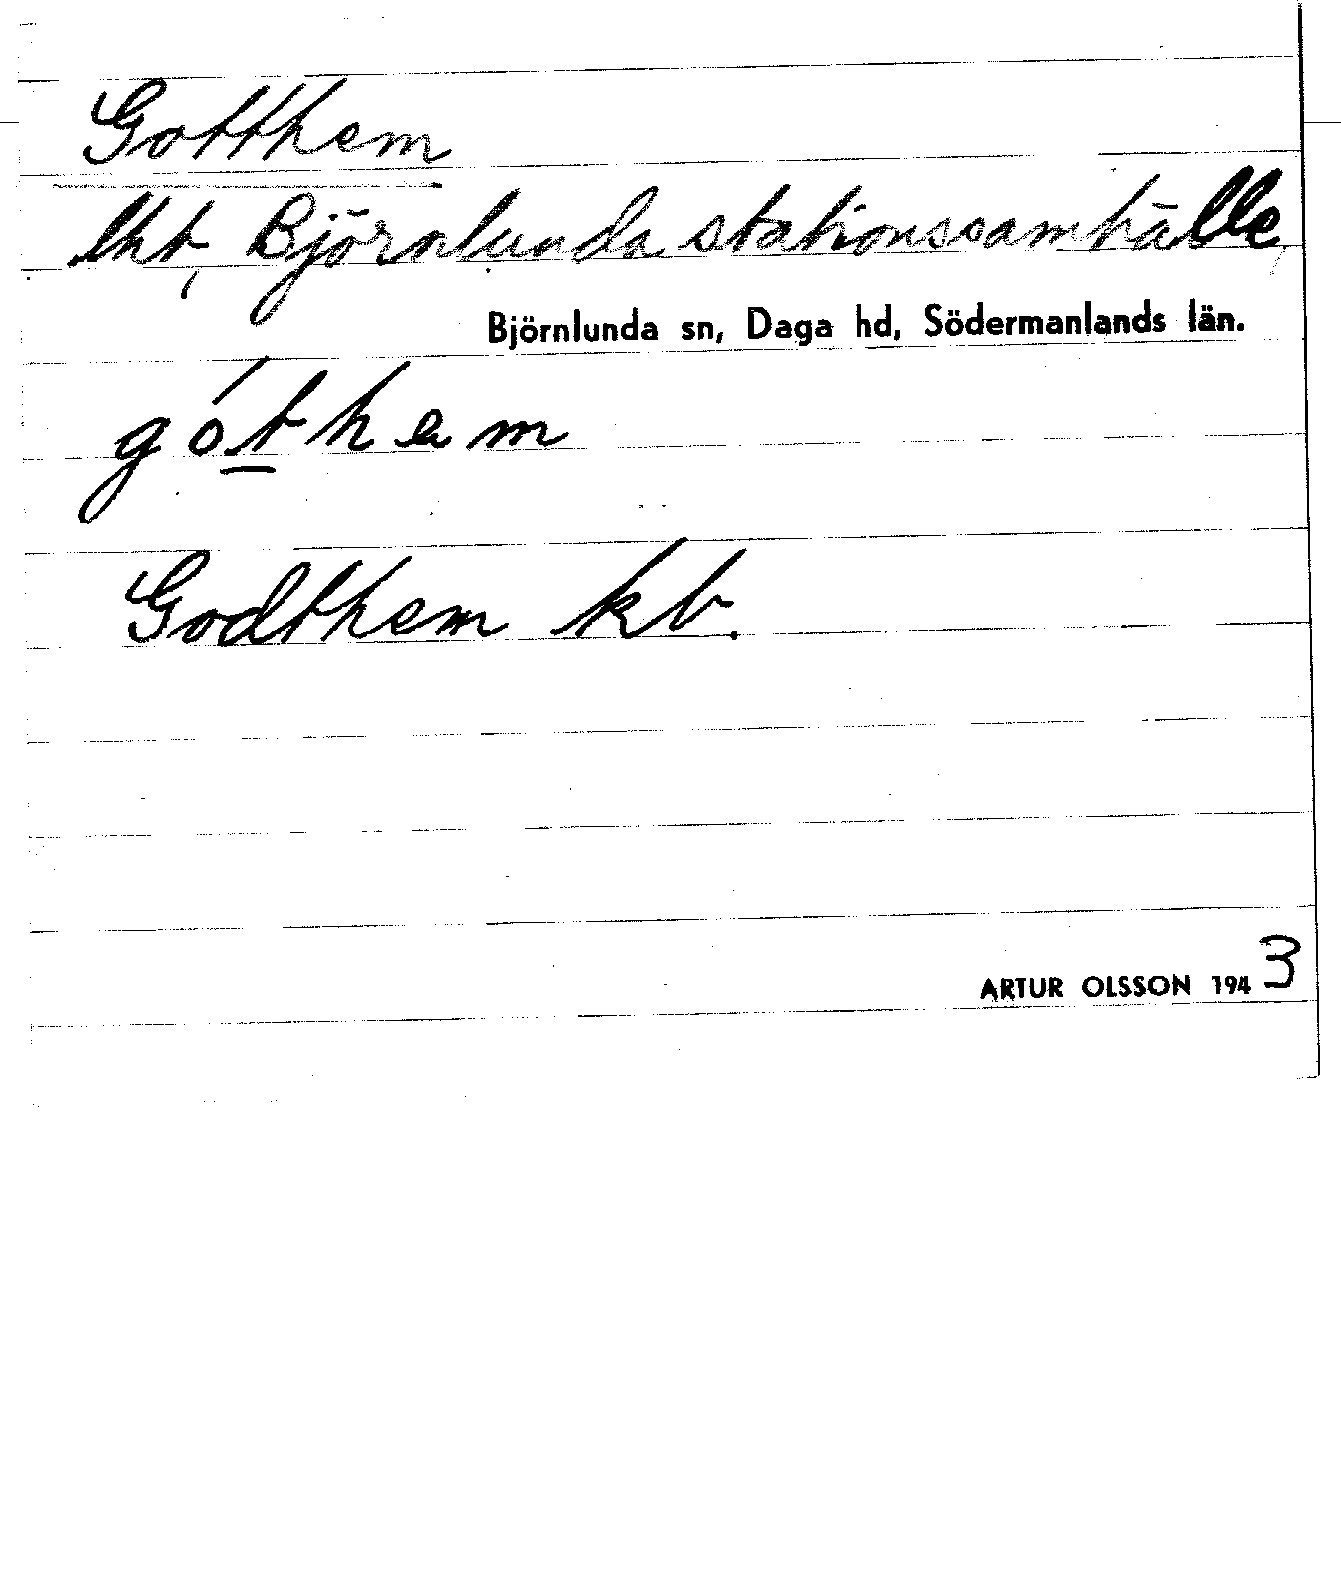 Gotthem
lht, Björnlunda stationssamhälle,
Björnlunda sn, Daga hd, Södermanlands län.
gót̲hem
Godthem kb.
ARTUR OLSSON 1943